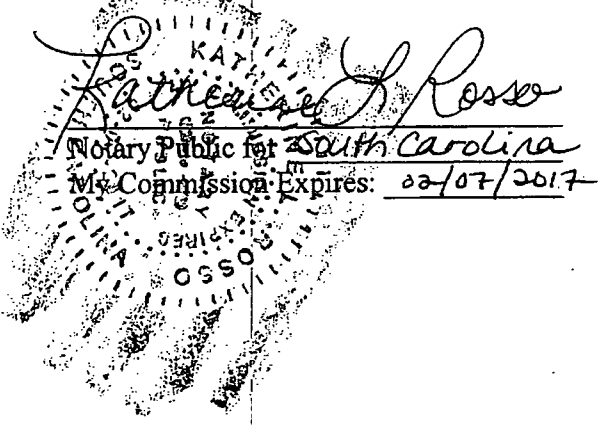 Katherine L Rosso
Notary Public for South Carolina
My Commission Expires: 02/07/2017
KATHE
ROSSO